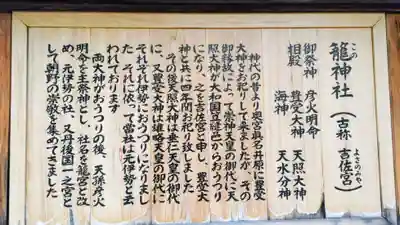 このじんじゃ
籠神社（古称 吉佐宮）
よさのみや
御祭神 彦火明命
相殿 豊受大神 天照大神
海神 天水分神
神代の昔より奥宮眞名井原に豊受
大神をお祀りして来ましたが、その
御縁故によって崇神天皇の御代に天
照大神が大和国笠縫邑からおうつり
になり、之を吉佐宮と申し、豊受大
神と共に四年間お祀り致しました
その後天照大神は垂仁天皇の御代
に、又豊受大神は雄略天皇の御代に
それぞれ伊勢におうつりになりまし
た。それに依って当社は元伊勢と云
われております
両大神がおうつりの後、天孫彦火
明命を主祭神とし、社名を籠宮と改
め、元伊勢の社、又丹後国一之宮と
して朝野の崇敬を集めてきました